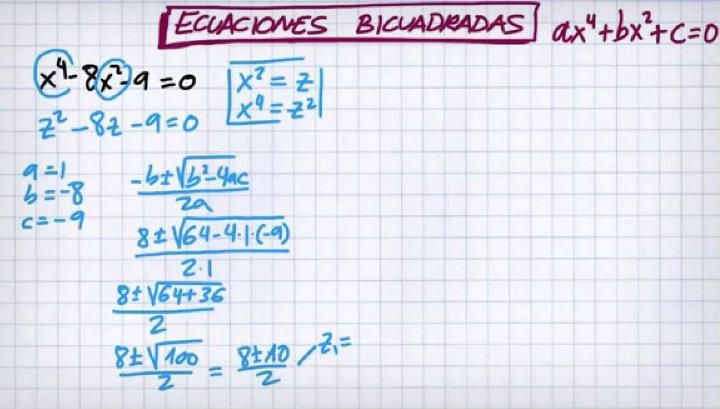 ECUACIONES BICUADRADAS ax⁴+bx²+c=0
x⁴-8x²-9=0
x²=z
x⁴=z²
z²-8z-9=0
a=1
b=-8
c=-9
-b±√b²-4ac
2a
8±√64-4·1·(-9)
2·1
8±√64+36
2
8±√100 = 8±10 z₁=
2 2